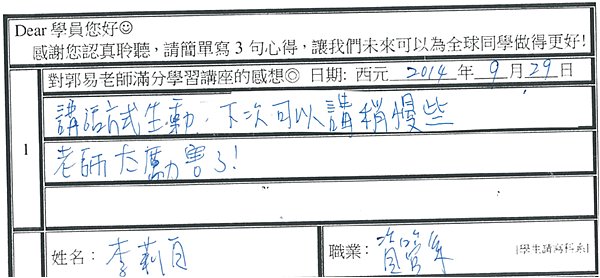 Dear 學員您好☺
感謝您認真聆聽，請簡單寫 3 句心得，讓我們未來可以為全球同學做得更好!
對郭易老師滿分學習講座的感想◎ 日期: 西元 2014 年 9 月 29 日
1
講話方式生動，下次可以講稍慢些
老師太厲害了!
姓名： 李莉 職業： 資管系 [學生請寫科系]